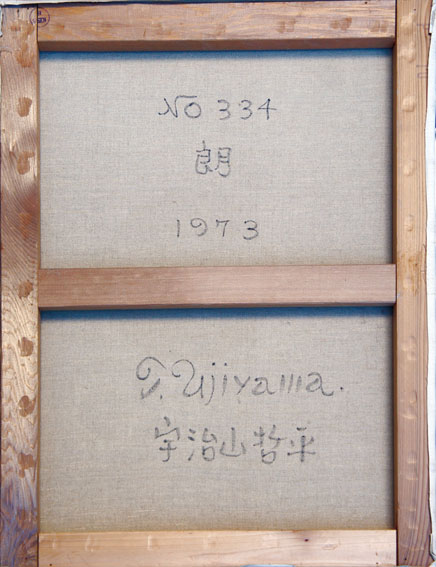 NO 334
朗
1973
T. Ujiyama.
宇治山哲平